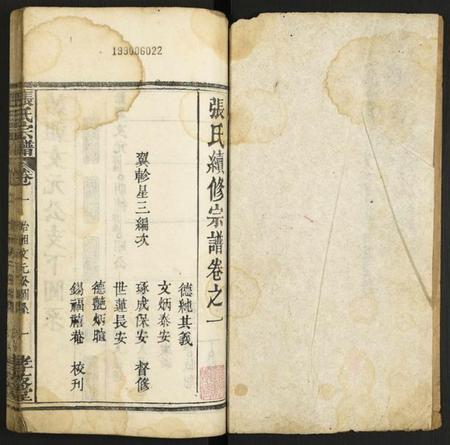 199006022
張氏續修宗譜卷之一
翼軫星三編次
德純其義
文炳泰安
琢成保安 督修
世蓮長安
德艷炳暄
錫福蘭菴 校刊
張氏宗譜 卷一 始祖文元公圖系 一